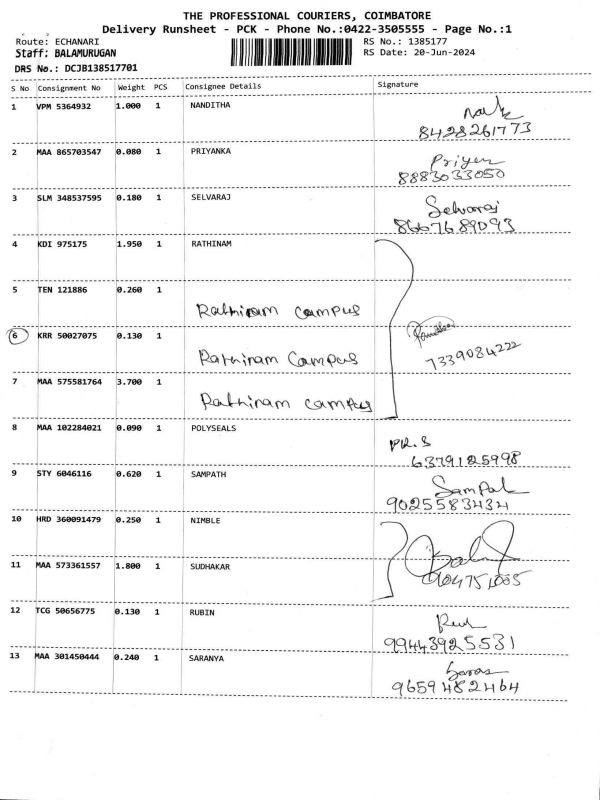 THE PROFESSIONAL COURIERS, COIMBATORE
Delivery Runsheet - PCK - Phone No.:0422-3505555 - Page No.:1
Route: ECHANARI RS No.: 1385177
Staff: BALAMURUGAN RS Date: 20-Jun-2024
DRS No.: DCJB138517701
S No Consignment No Weight PCS Consignee Details Signature
1 VPM 5364932 1.000 1 NANDITHA
8428261773
2 MAA 865703547 0.080 1 PRIYANKA Priyan
8883033050
3 SLM 348537595 0.180 1 SELVARAJ Selvaraj
8667689093
4 KDI 975175 1.950 1 RATHINAM
5 TEN 121886 0.260 1
Rathinam campus
6 KRR 50027075 0.130 1
Rathinam Campus 7339084222
7 MAA 575581764 3.700 1
Rathinam campus
8 MAA 102284021 0.090 1 POLYSEALS PR.S
6379125998
9 STY 6046116 0.620 1 SAMPATH Sampath
9025583434
10 HRD 360091479 0.250 1 NIMBLE
11 MAA 573361557 1.800 1 SUDHAKAR
12 TCG 50656775 0.130 1 RUBIN
99443925531
13 MAA 301450444 0.240 1 SARANYA
9659482464